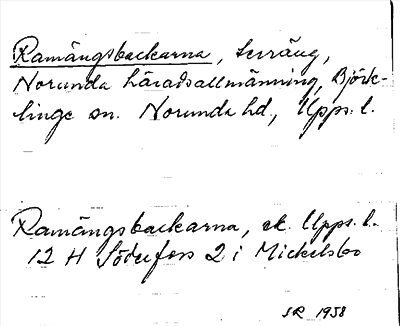 Ramängsbackarna, terräng,
Norunda häradsallmänning, Björk-
linge sn. Norunda hd, Upps. l.
Ramängsbackarna, ek. Upps. l.
12 H Söderfors 2 i Mickelsbo
SR 1958